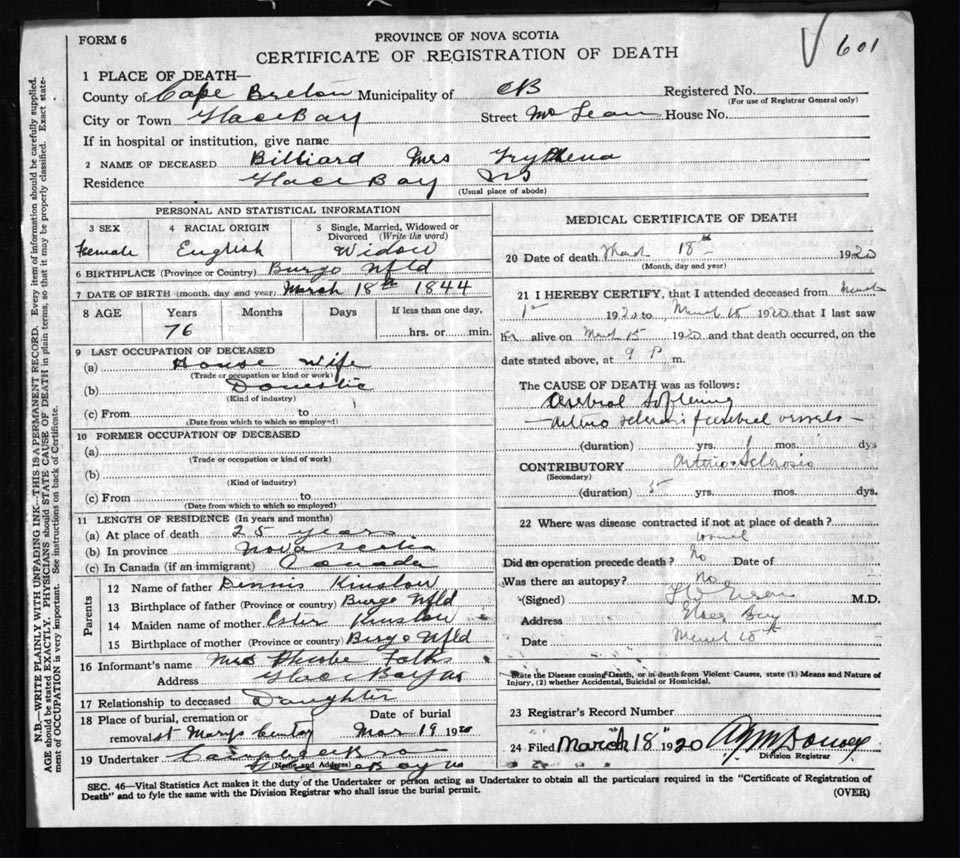 FORM 6
PROVINCE OF NOVA SCOTIA
CERTIFICATE OF REGISTRATION OF DEATH
601
1 PLACE OF DEATH—
County of Cape Breton Municipality of CB Registered No.
(For use of Registrar General only)
City or Town Glace Bay Street McLean House No.
If in hospital or institution, give name
2 NAME OF DECEASED Billiard Mrs Tryphena
Residence Glace Bay NS
(Usual place of abode)
PERSONAL AND STATISTICAL INFORMATION
3 SEX 4 RACIAL ORIGIN 5 Single, Married, Widowed or Divorced (Write the word)
Female English Widow
6 BIRTHPLACE (Province or Country) Burgo Nfld
7 DATE OF BIRTH (month, day and year) March 18th 1844
8 AGE Years Months Days If less than one day,
76 hrs. or min.
9 LAST OCCUPATION OF DECEASED
(a) House wife
(Trade or occupation or kind or work)
(b) Domestic
(Kind of industry)
(c) From to
(Date from which to which so employed)
10 FORMER OCCUPATION OF DECEASED
(a)
(Trade or occupation or kind of work)
(b)
(Kind of industry)
(c) From to
(Date from which to which so employed)
11 LENGTH OF RESIDENCE (In years and months)
(a) At place of death 25 years
(b) In province Nova Scotia
(c) In Canada (if an immigrant) Canada
Parents
12 Name of father Dennis Kinslow
13 Birthplace of father (Province or country) Burgo Nfld
14 Maiden name of mother Ester Kinslow
15 Birthplace of mother (Province or country) Burgo Nfld
16 Informant's name Mrs Phoebe
Address Glace Bay NS
17 Relationship to deceased Daughter
18 Place of burial, cremation or Date of burial
removal St Marys Mar 19 1920
19 Undertaker
(Name and Address)
Glace Bay NS
MEDICAL CERTIFICATE OF DEATH
20 Date of death March 18th 1920
(Month, day and year)
21 I HEREBY CERTIFY, that I attended deceased from March
1st 1920 to March 18 1920 that I last saw
her alive on March 15 1920 and that death occurred, on the
date stated above, at 9 P. m.
The CAUSE OF DEATH was as follows:
Cerebral Softening
Arterio sclerosis cerebral vessels
(duration) yrs. 1 mos. dys
CONTRIBUTORY Arterio-Sclerosis
(Secondary)
(duration) 5 yrs. mos. dys.
22 Where was disease contracted if not at place of death?
Did an operation precede death? No Date of
Was there an autopsy? No
(Signed) M.D.
Address Glace Bay
Date March 18th
State the Disease causing Death, or in death from Violent Causes, state (1) Means and Nature of
Injury, (2) whether Accidental, Suicidal or Homicidal.
23 Registrar's Record Number
24 Filed March 18 1920
Division Registrar
SEC. 46—Vital Statistics Act makes it the duty of the Undertaker or person acting as Undertaker to obtain all the particulars required in the "Certificate of Registration of
Death" and to fyle the same with the Division Registrar who shall issue the burial permit.
(OVER)
N.B.—WRITE PLAINLY WITH UNFADING INK—THIS IS A PERMANENT RECORD. Every item of information should be carefully supplied.
AGE should be stated EXACTLY. PHYSICIANS should STATE CAUSE OF DEATH in plain terms, so that it may be properly classified. Exact state-
ment of OCCUPATION is very important. See instructions on back of Certificate.